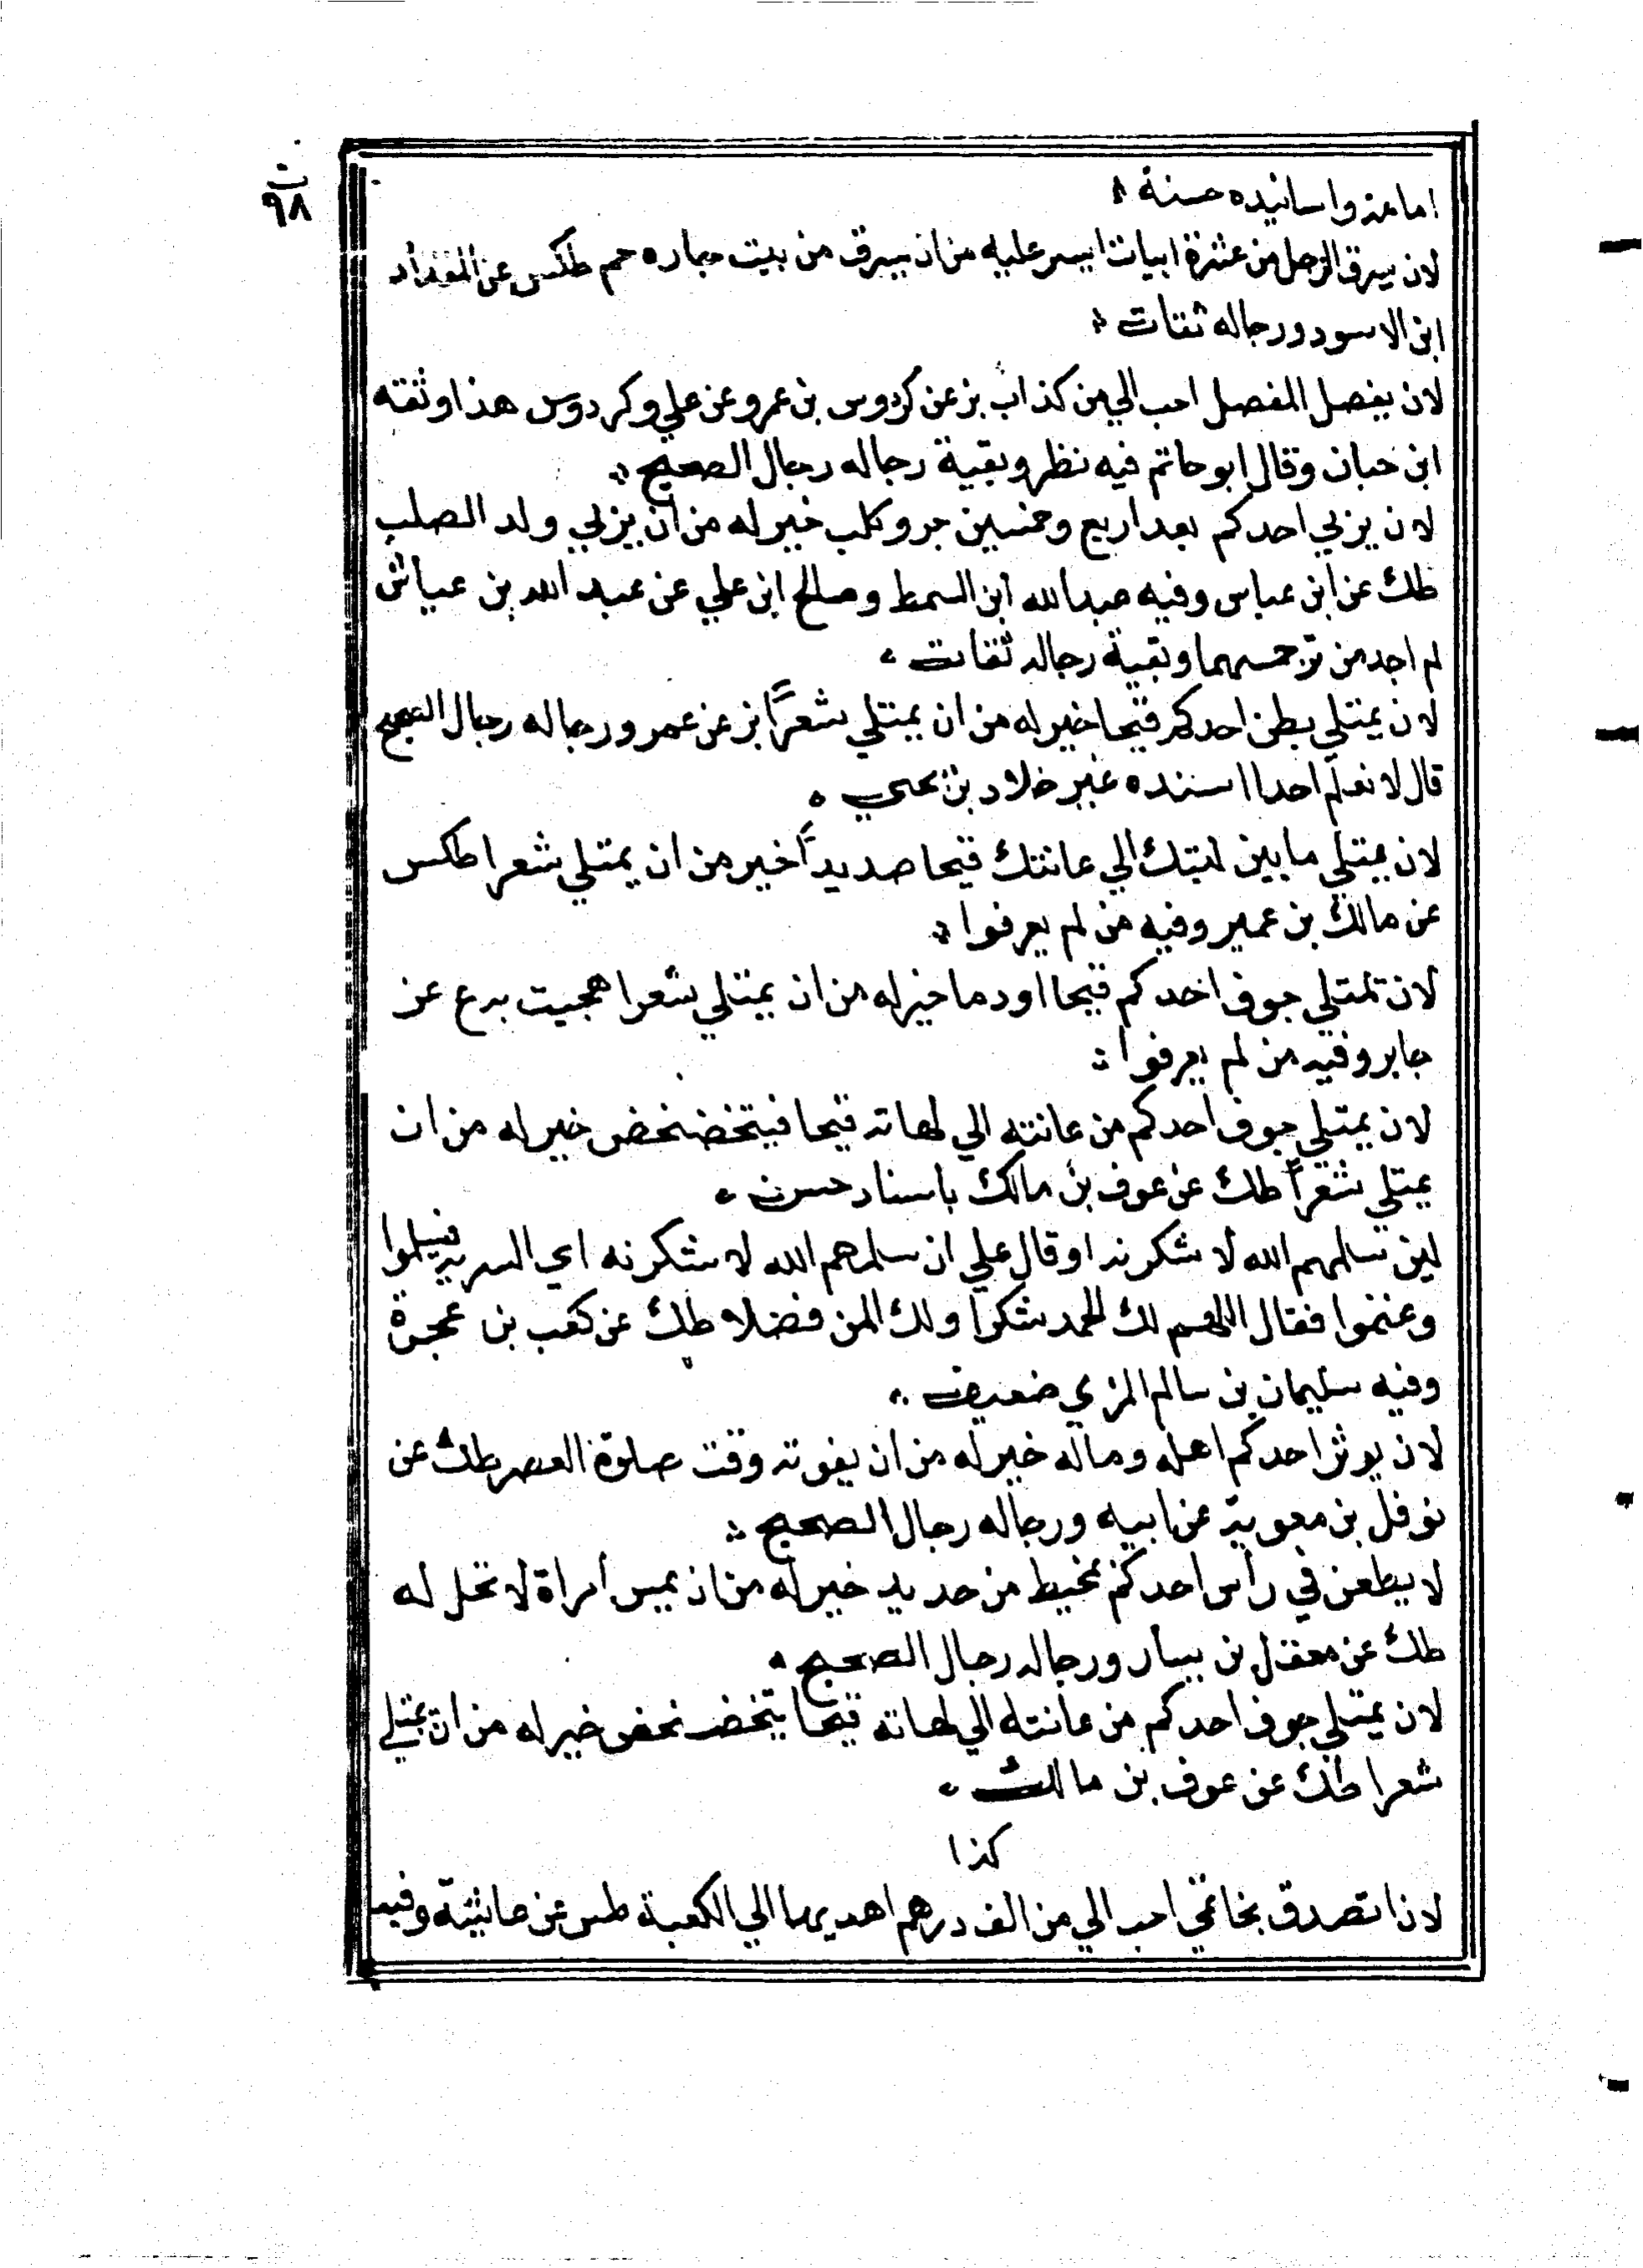 ت
٩٨
امامة واسانيده حسنة
لان يسرق الرجل من عشرة ابيات ايسر عليه من ان يسرق من بيت جاره حم طكس عن المقداد
ابن الاسود ورجاله ثقات
لان يفصل المفصل احب الي من كذا بز عن كردوس بن عمرو عن علي وكردوس هذا وثقه
ابن حبان وقال ابو حاتم فيه نظر وبقية رجاله رجال الصحيح
لان يربي احدكم بعد اربع وخمسين جرو كلب خير له من ان يربي ولد الصلب
طك عن ابن عباس وفيه عبد الله ابن السمط وصالح ابن علي عن عبد الله بن عباس
لم اجد من ترجمهما وبقية رجاله ثقات
لان يمتلي بطن احدكم قيحا خير له من ان يمتلي شعرًا بز عن عمر ورجاله رجال الصحيح
قال لا نعلم احدا اسنده غير خلاد بن يحيي
لان يمتلي ما بين لبتك الي عانتك قيحا صديداً خير من ان يمتلي شعرا طكس
عن مالك بن عمير وفيه من لم يعرفوا
لان تمتلي جوف احدكم قيحا او دما خير له من ان يمتلي شعرا هجيت به ع عن
جابر وفيه من لم يعرفوا
لان يمتلي جوف احدكم من عانته الي لهاته قيحا فيتخضخض خير له من ان
يمتلي شعراً طك عن عوف بن مالك باسناد حسن
لين سلمهم الله لا شكرنه او قال علي ان سلمهم الله لا شكرنه اي السرية فسلموا
وغنموا فقال اللهم لك الحمد شكرا ولك المن فضلا طك عن كعب بن عجرة
وفيه سليمان بن سالم المزي ضعيف
لان يوتر احدكم اهله وماله خير له من ان يفوته وقت صلوة العصر طك عن
نوفل بن معوية عن ابيه ورجاله رجال الصحيح
لا يطعن في راس احدكم بمخيط من حديد خير له من ان يمس امراة لا تحل له
طك عن معقل بن يسار ورجاله رجال الصحيح
لان يمتلي جوف احدكم من عانته الي لهاته قيحا يتخضخض خير له من ان يمتلي
شعرا طك عن عوف بن مالك
كذا
لان اتصدق بخاتمي احب الي من الف درهم اهديها الي الكعبة طس عن عائشة وفيه